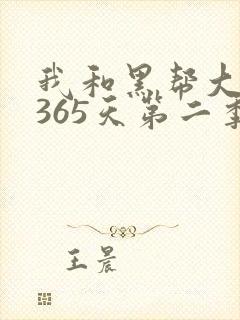 我和黑帮大
365天第二季
王晨